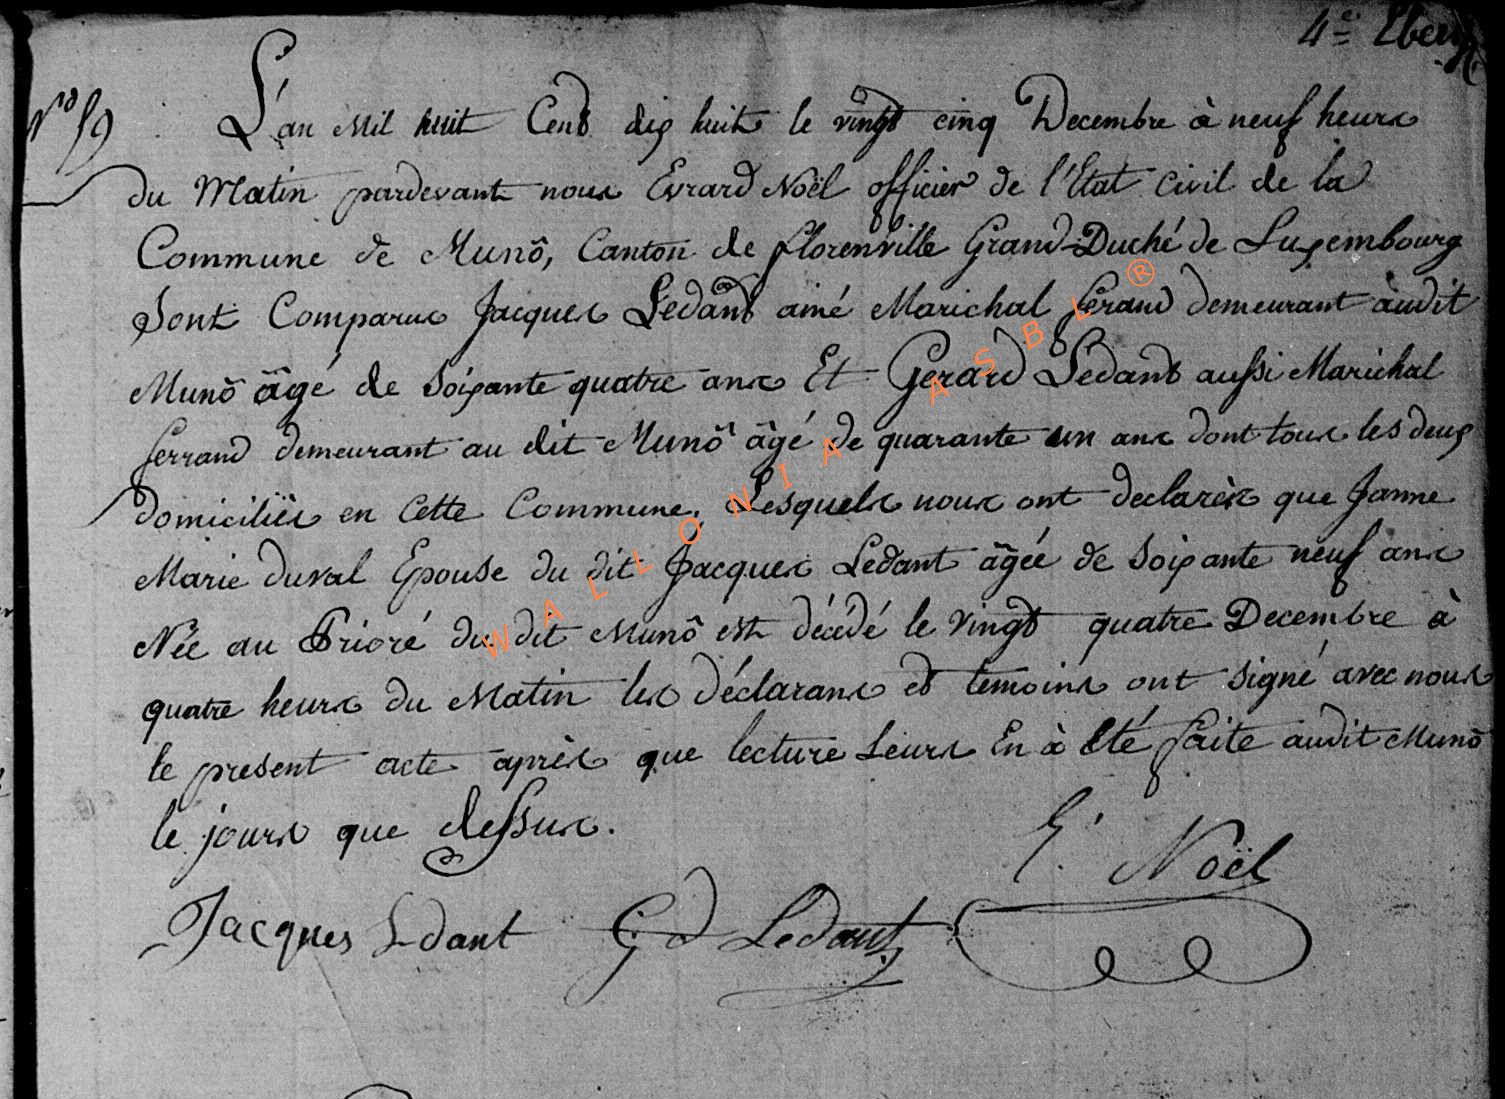 N.o 59
L'an Mil huit Cent dix huit le vingt cinq Decembre à neuf heurs
du Matin pardevant nous Evrard Noël officier de l'Etat Civil de la
Commune de Munô, Canton de florenville Grand-Duché de Luxembourg
Sont Comparus Jacques Ledant ainé Marichal ferand demeurant audit
Munô âgé de Soixante quatre ans Et Gerard Ledant aussi Marichal
ferrand demeurant au dit Munô âgé de quarante un ans dont tous les deux
domiciliés en Cette Commune, Lesquels nous ont declarés que Janne
Marie duval Epouse du dit Jacques Ledant âgée de Soixante neuf ans
Née au Prioré du dit Munô est décédé le Vingt quatre Decembre à
quatre heurs du Matin les déclarans et temoins ont signé avec nous
le present acte après que lecture Leurs En à Eté faite audit Munô
le jours que dessus.
E. Noël
Jacques Ldant Gd Ledant
WALLONIA ASBL ®